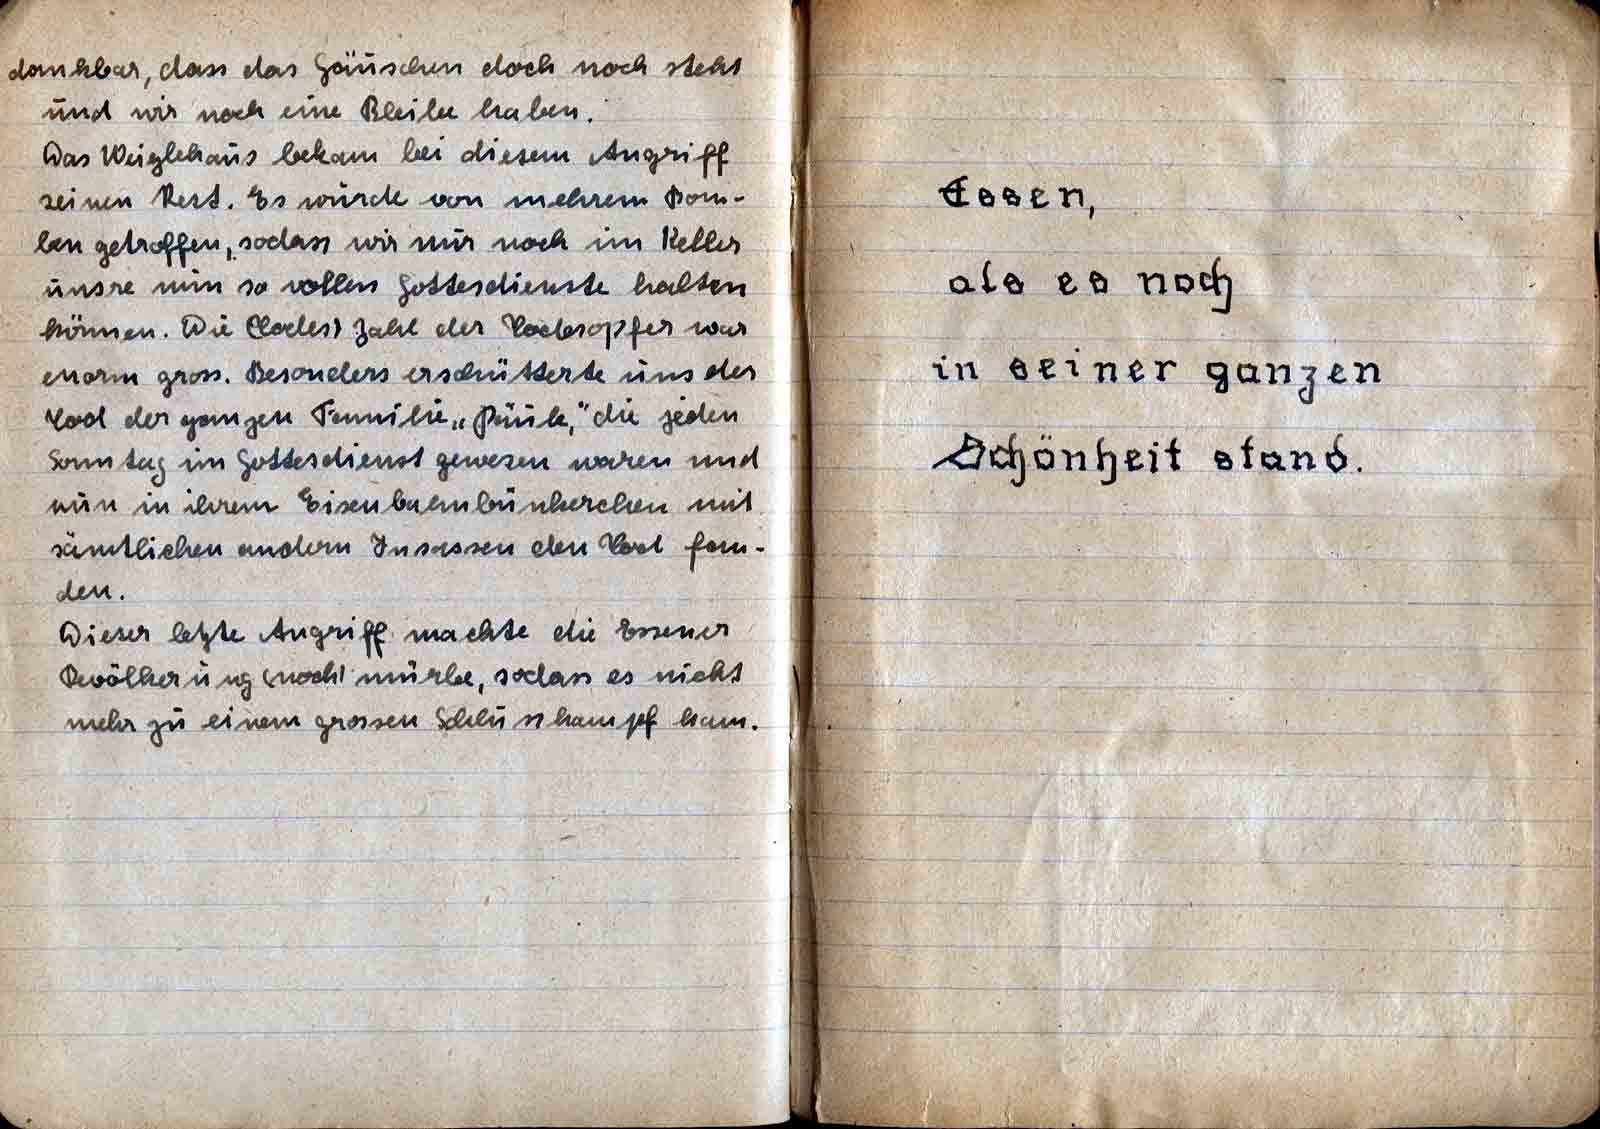 dankbar, dass das Häuschen doch noch steht
und wir noch eine Bleibe haben.
Das Weiglehaus bekam bei diesem Angriff
seinen Rest. Es wurde von mehrern Bom-
ben getroffen, sodass wir nur noch im Keller
unsre nun so vollen Gottesdienste halten
können. Die (Todes) Zahl der Todesopfer war
enorm gross. Besonders erschütterte uns der
Tod der ganzen Familie „ die jeden
Sonntag im Gottesdienst gewesen waren und
nun in ihrem Eisenbahnbünkerchen mit
sämtlichen andern Insassen den Tod fan-
den.
Dieser letzte Angriff machte die Essener
Bevölkerung (noch) mürbe, sodass es nicht
mehr zu einem grossen Schlusskampf kam.
Essen,
als es noch
in seiner ganzen
Schönheit stand.